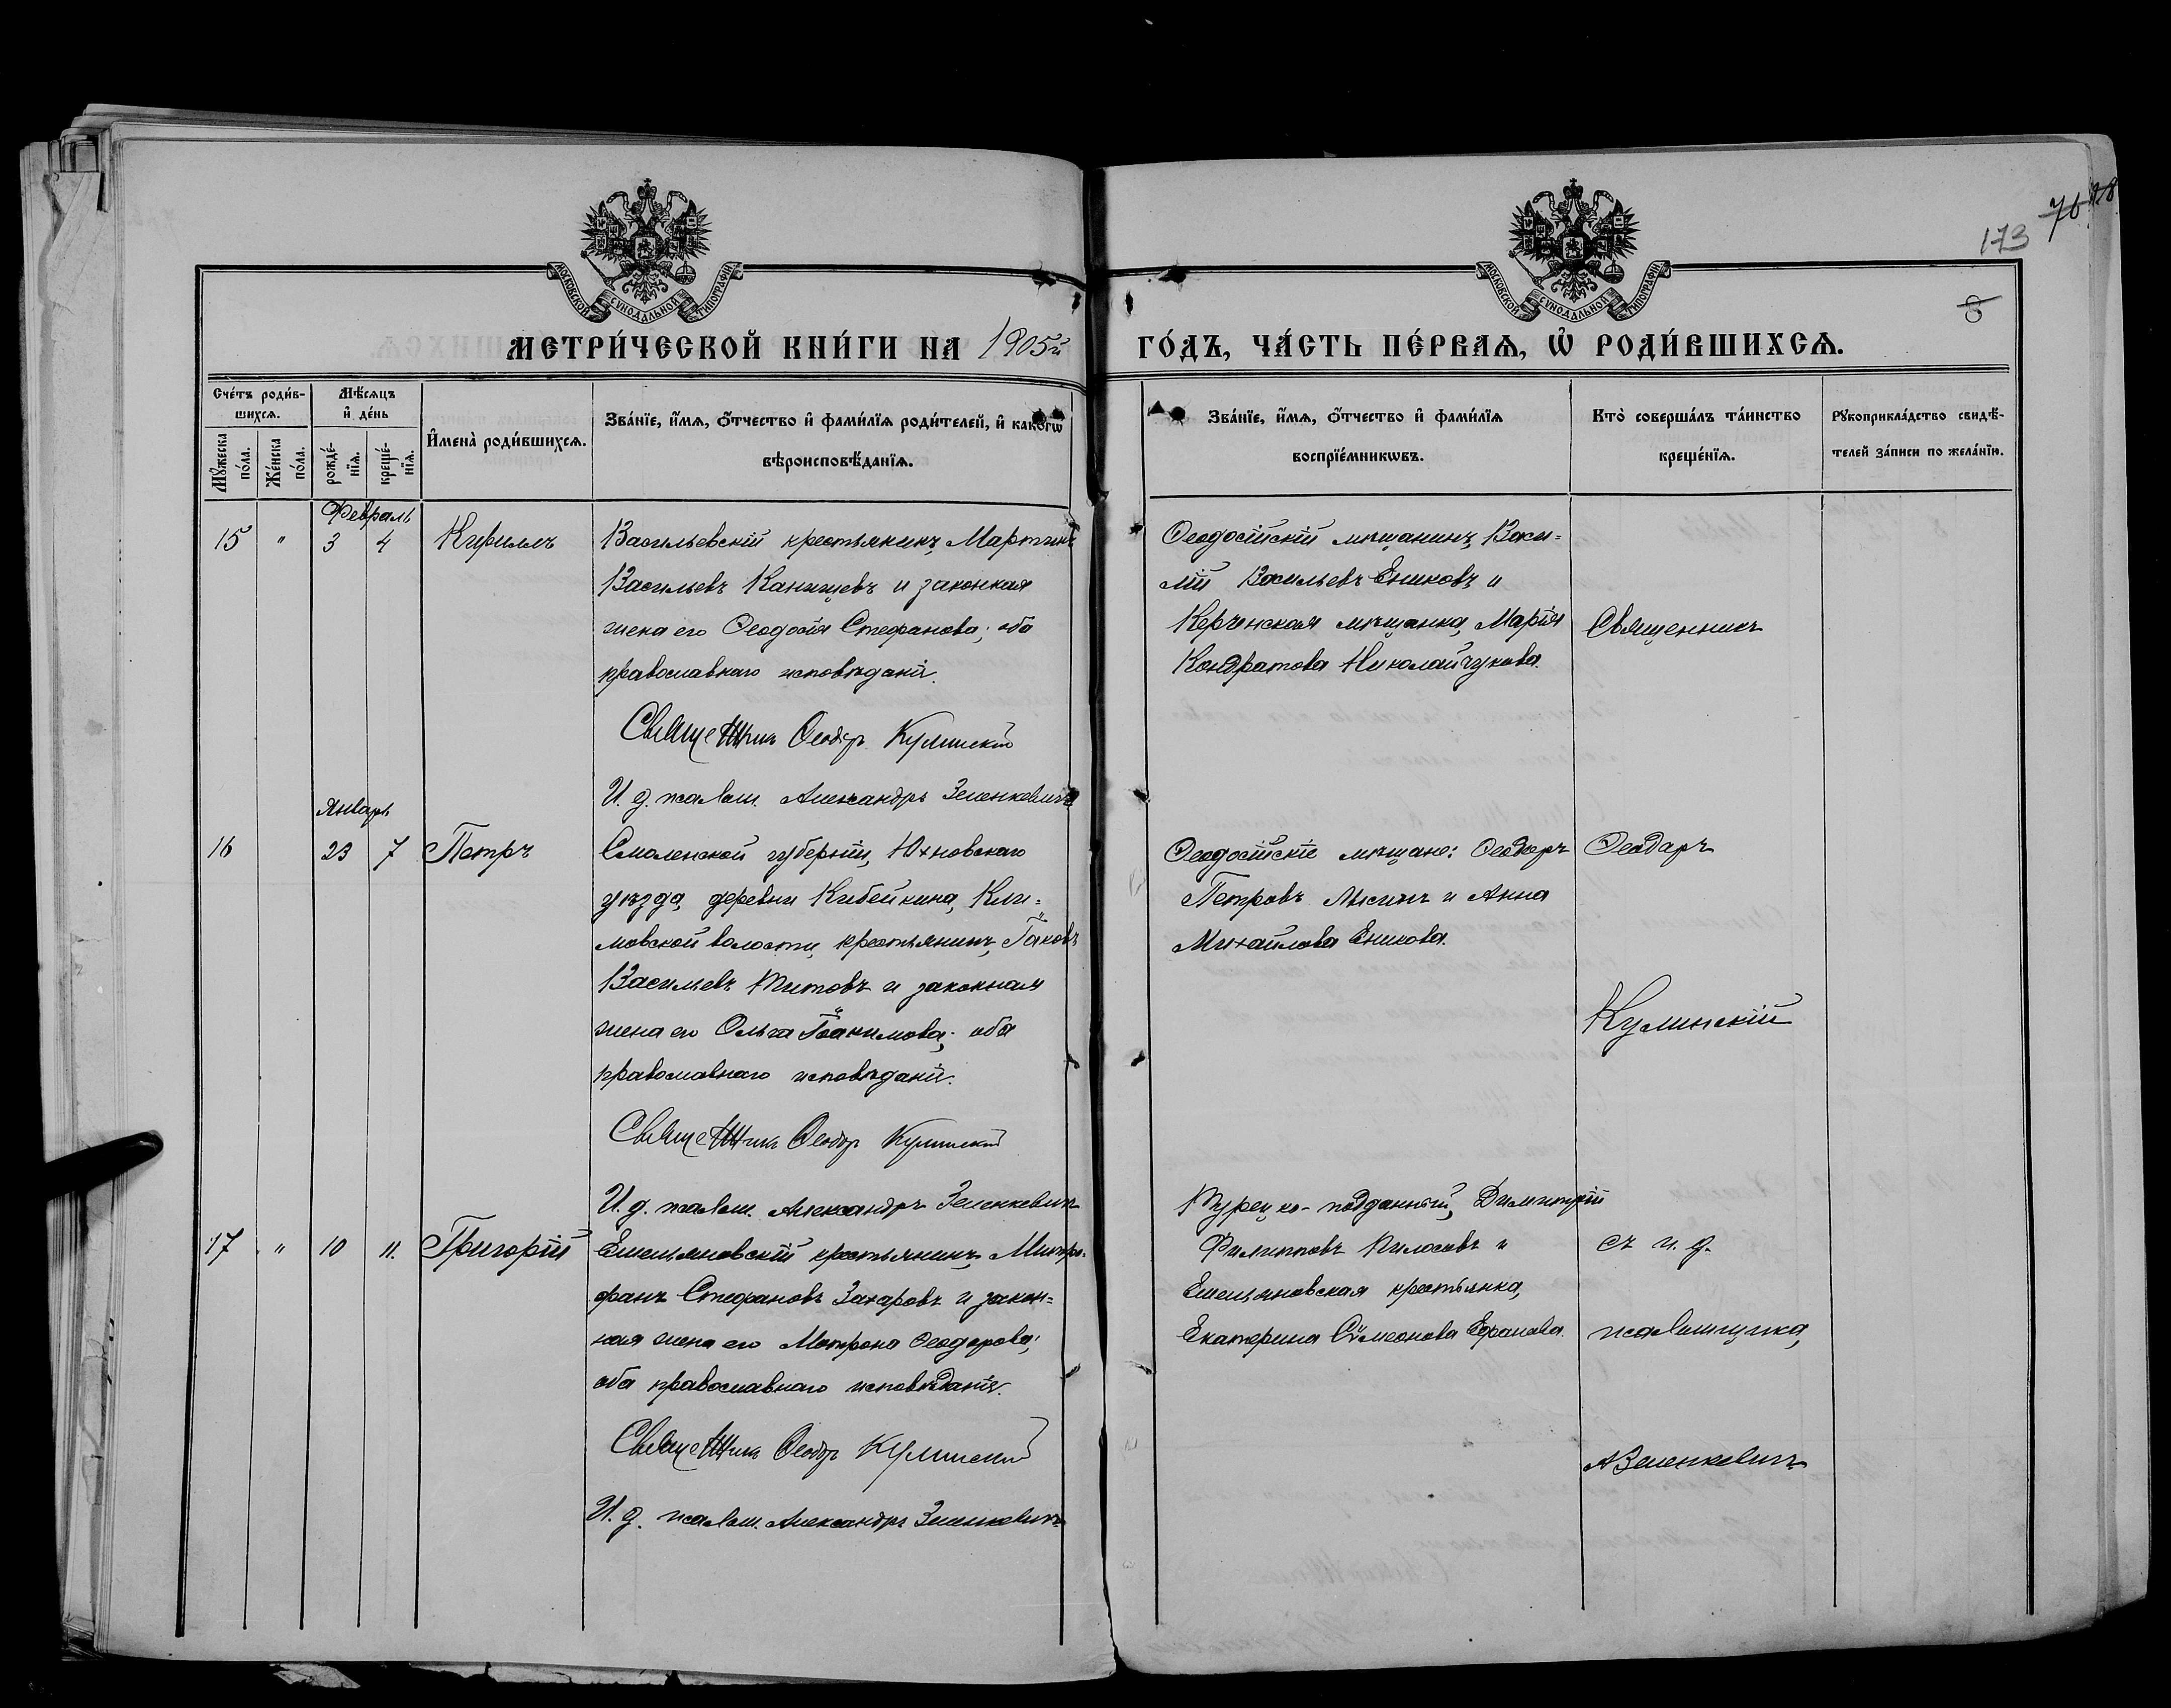 173
76
78
8
МОСКОВСКОЙ СѴНОДАЛЬНОЙ ТИПОГРАФІИ
МОСКОВСКОЙ СѴНОДАЛЬНОЙ ТИПОГРАФІИ
МЕТРИ́ЧЕСКОЙ КНИ́ГИ НА 1905й
ГО́ДЪ, ЧА́СТЬ ПЕ́РВАѦ, Ѡ҆ РОДИ́ВШИХСѦ.
Сче́тъ роди́в-
шихсѧ.
Мꙋжеска
по́ла.
Же́нска
по́ла.
Мѣ́сѧцъ
и҆ де́нь
рожде́-
нїѧ.
креще́-
нїѧ.
И҆мена̀ роди́вшихсѧ.
Зва́нїе, и҆́мѧ, ѻ҆́тчество и҆ фами́лїѧ роди́телей, и҆ како́гѡ
вѣроисповѣ́данїѧ.
Зва́нїе, и҆́мѧ, ѻ҆́тчество и҆ фами́лїѧ
воспрїе́мникѡвъ.
Кто̀ соверша́лъ та́инство
креще́нїѧ.
Рꙋкоприкла́дство свидѣ́-
телей за́писи по жела́нїю.
Февраль
15 " 3 4 Кириллъ
Васильевскій крестьянинъ, Мартинъ
Васильевъ Канищевъ и законная
жена его Ѳеодосія Стефанова; оба
православнаго исповѣданія.
Священникъ Ѳеодоръ Кулинскій
И. д. псалом. Александръ Зеленкевичъ
Ѳеодосійскій мѣщанинъ, Васи=
лій Васильевъ Ениковъ и
Керченская мѣщанка, Марія
Кондратова Николайчукова.
Священникъ
Январь
16 23 7 Петръ
Смоленской губерніи, Юхновскаго
уѣзда, деревни Кибейкина, Кли=
мовской волости, крестьянинъ, Іаковъ
Васильевъ Титовъ и законная
жена его Ольга Іоакимова; оба
православнаго исповѣданія.
Священникъ Ѳеодоръ Кулинскій
И. д. псалом. Александръ Зеленкевичъ
Ѳеодосійскіе мѣщане: Ѳеодоръ
Петровъ Лысинъ и Анна
Михайлова Еникова.
Ѳеодоръ
Кулинскій
17 " 10 11. Григорій
Емельяновскій крестьянинъ, Митро=
фанъ Стефановъ Захаровъ и закон=
ная жена его Матрона Ѳеодорова;
оба православнаго исповѣданія.
Священникъ Ѳеодоръ Кулинскій
И. д. псалом. Александръ Зеленкевичъ
Турецко-подданный, Димитрій
Филипповъ Пилосовъ и
Емельяновская крестьянка,
Екатерина Сѵмеонова Ефанова.
съ и. д.
псаломщика,
А Зеленкевичъ